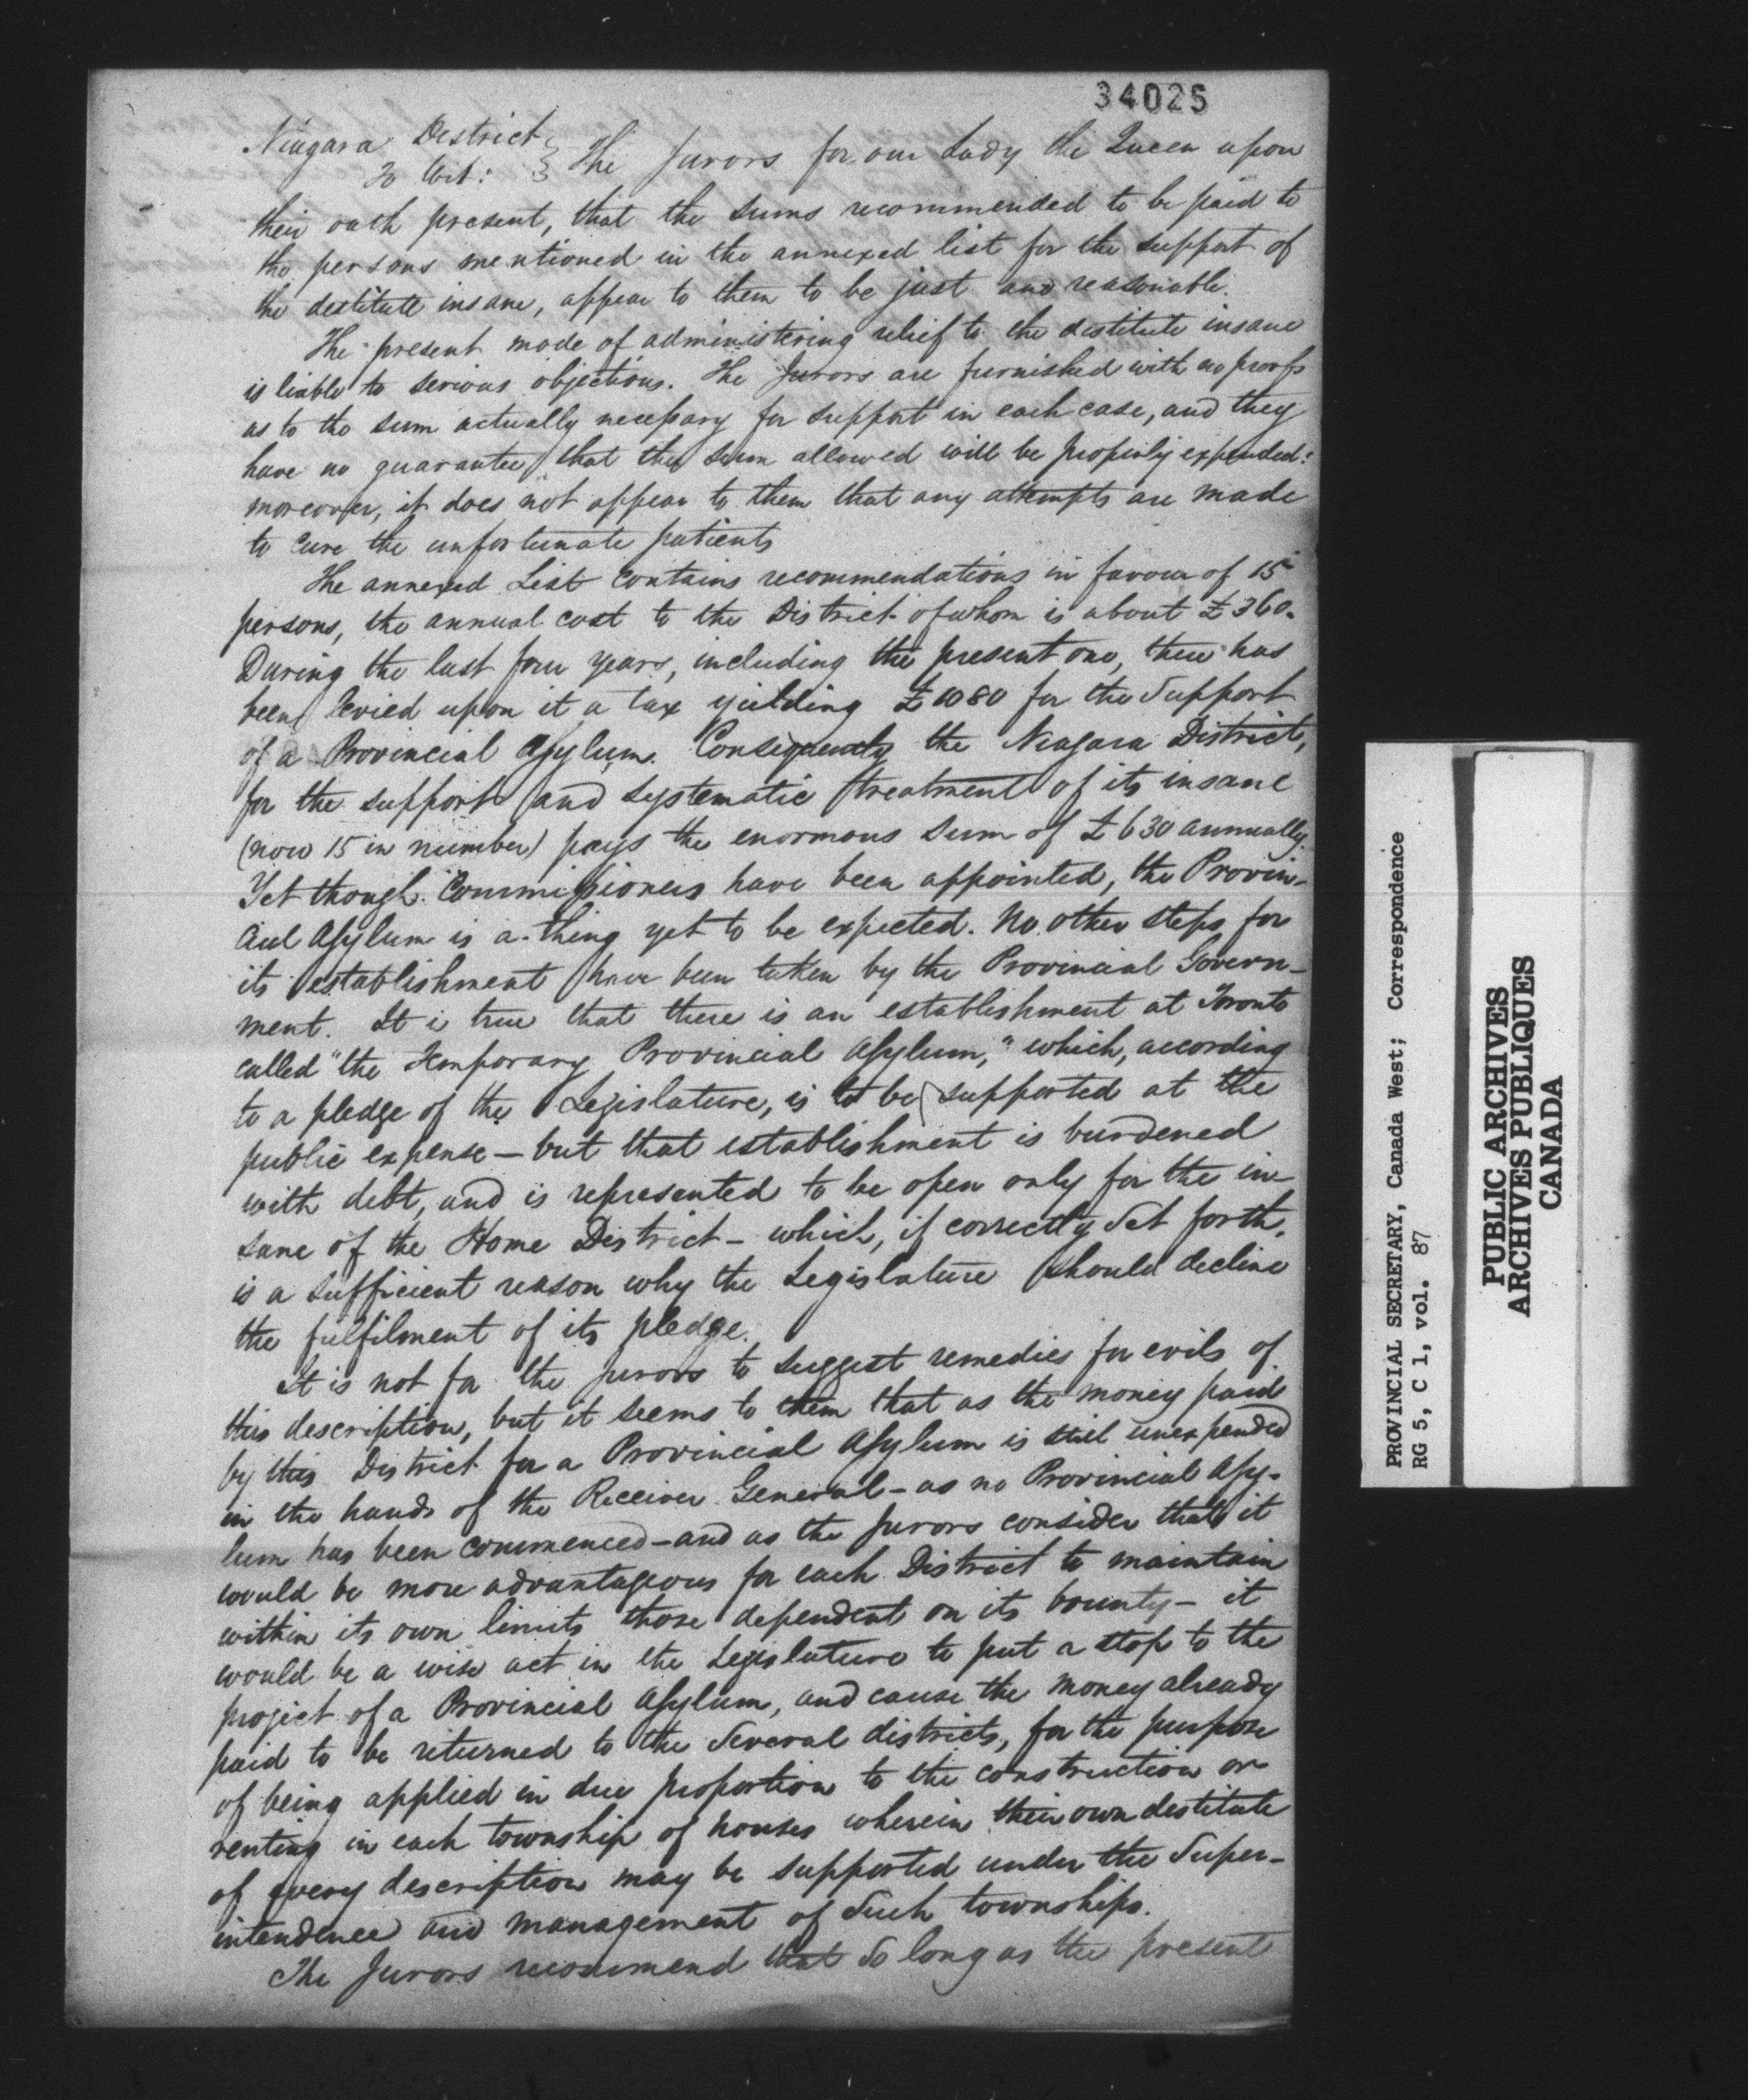 34025
Niagara District
To Wit: } The Jurors for our Lady the Queen upon
their oath present, that the sums recommended to be paid to
the persons mentioned in the annexed list for the support of
the destitute insane, appear to them to be just and reasonable.
The present mode of administering relief to the destitute insane
is liable to serious objections. The Jurors are furnished with no proofs
as to the sum actually necessary for support in each case, and they
have no guarantee that the sum allowed will be properly expended:
moreover, it does not appear to them that any attempts are made
to cure the unfortunate patients
The annexed List contains recommendations in favour of 15
persons, the annual cost to the District of whom is about £360.
During the last four years, including the present one, there has
been levied upon it a tax yielding £1080 for the Support
of a Provincial Asylum. Consequently the Niagara District,
for the support and systematic treatment of its insane
(now 15 in number) pays the enormous sum of £630 annually.
Yet though Commissioners have been appointed, the Provin-
cial Asylum is a thing yet to be expected. No other steps for
its establishment have been taken by the Provincial Govern-
ment. It is true that there is an establishment at Toronto
called "the Temporary Provincial Asylum," which, according
to a pledge of the Legislature, is to be supported at the
public expense - but that establishment is burdened
with debt, and is represented to be open only for the in-
sane of the Home District - which, if correctly set forth,
is a sufficient reason why the Legislature should decline
the fulfilment of its pledge.
It is not for the jurors to suggest remedies for evils of
this description, but it seems to them that as the money paid
by this District for a Provincial Asylum is still unexpended
in the hands of the Receiver General - as no Provincial Asy-
lum has been commenced - and as the jurors consider that it
would be more advantageous for each District to maintain
within its own limits those dependent on its bounty - it
would be a wise act in the Legislature to put a stop to the
project of a Provincial Asylum, and cause the money already
paid to be returned to the several districts, for the purpose
of being applied in due proportion to the construction or
renting in each township of houses wherein their own destitute
of every description may be supported under the Super-
intendence and management of such townships.
The Jurors recommend that so long as the present
PROVINCIAL SECRETARY, Canada West; Correspondence
RG 5, C 1, vol. 87
PUBLIC ARCHIVES
ARCHIVES PUBLIQUES
CANADA